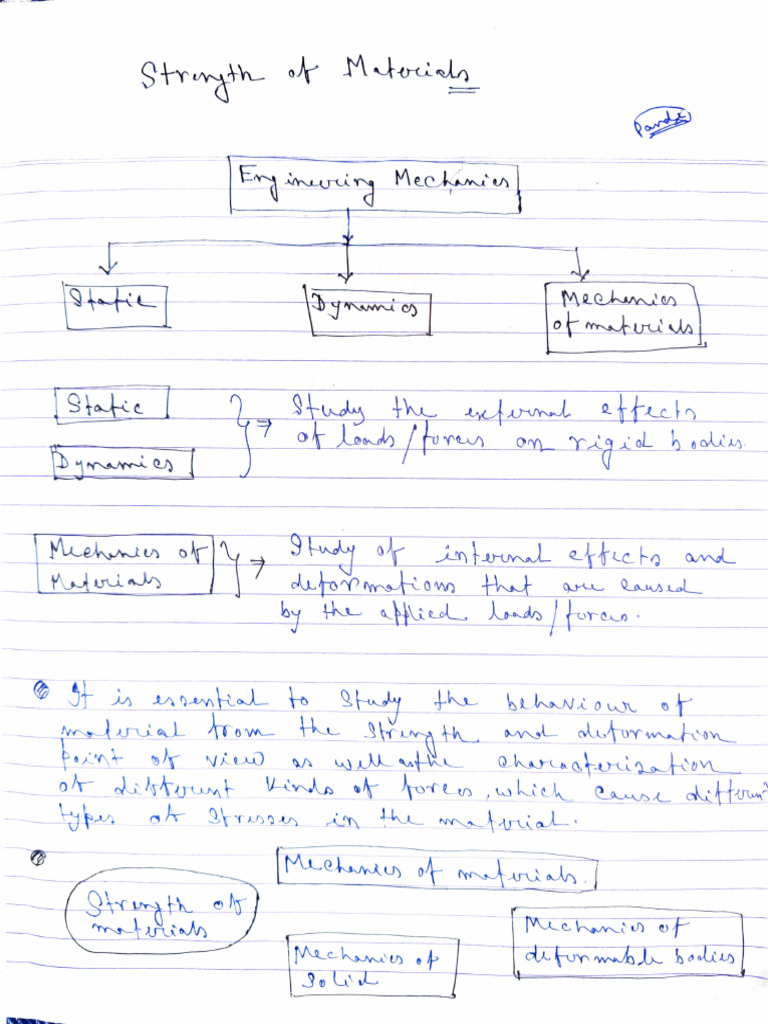 Strength of Materials
Pande
Engineering Mechanics
Static
Dynamics
Mechanics
of materials
Static
Dynamics
Study the external effects
of loads/forces on rigid bodies.
Mechanics of
Materials
Study of internal effects and
deformations that are caused
by the applied loads/forces.
It is essential to study the behaviour of
material from the strength and deformation
point of view as well as the characterization
of different kinds of forces, which cause different
types of stresses in the material.
Mechanics of materials.
Strength of
materials
Mechanics of
deformable bodies
Mechanics of
solid